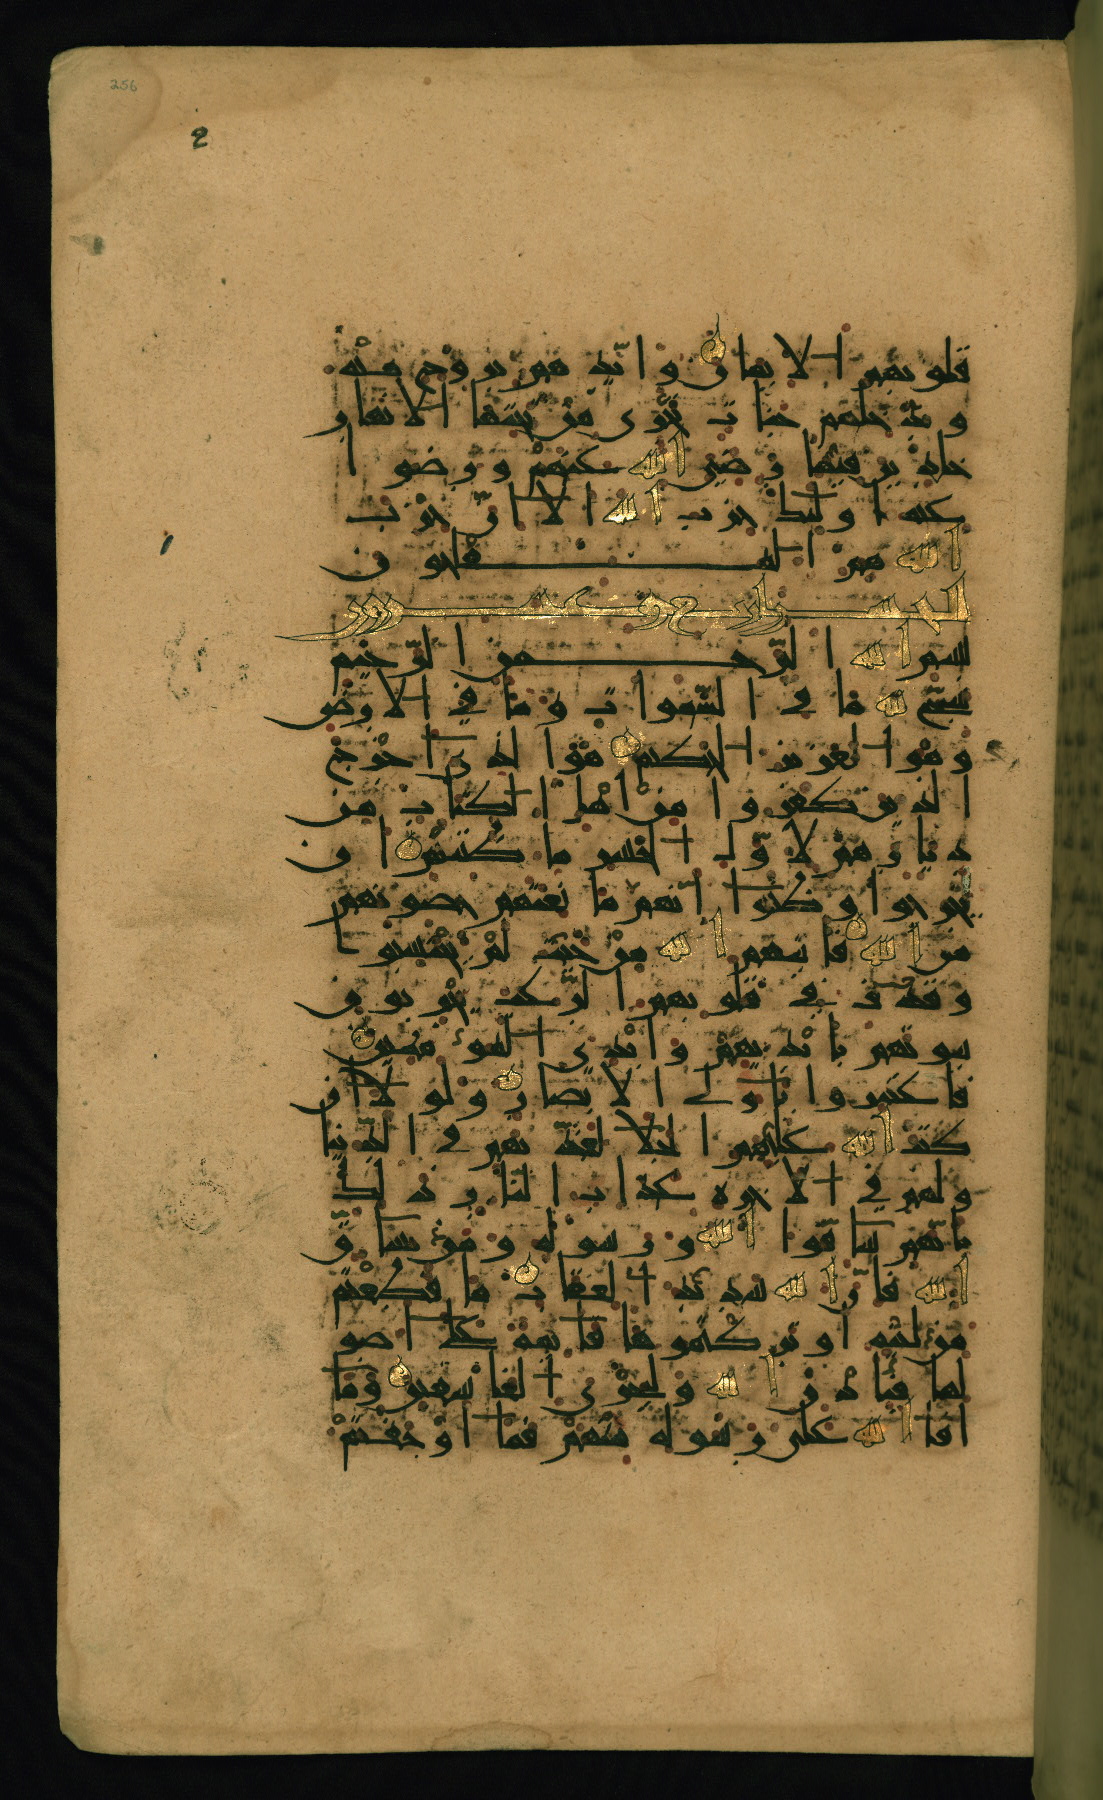 256
2
قلوبهم الايمان وايدهم بروح منه
ويدخلهم جنات تجري من تحتها الانهار
خالدين فيها رضي الله عنهم ورضوا
عنه اولئك حزب الله الا ان حزب
الله هم المفلحون
الحشر اربع وعشرون
بسم الله الرحمن الرحيم
سبح لله ما في السموات وما في الارض
وهو العزيز الحكيم هو الذي اخرج
الذين كفروا من اهل الكتاب من
ديارهم لاول الحشر ما ظننتم ان
يخرجوا وظنوا انهم مانعتهم حصونهم
من الله فاتيهم الله من حيث لم يحتسبوا
وقذف في قلوبهم الرعب يخربون
بيوتهم بايديهم وايدي المومنين
فاعتبروا ياولي الابصار ولولا ان
كتب الله عليهم الجلا لعذبهم في الدنيا
ولهم في الاخرة عذاب النار ذلك
بانهم شاقوا الله ورسوله ومن يشاق
الله فان الله شديد العقاب ما قطعتم
من لينة او تركتموها قايمة على اصو
لها فباذن الله وليخزي الفاسقين وما
افا الله على رسوله منهم فما اوجفتم